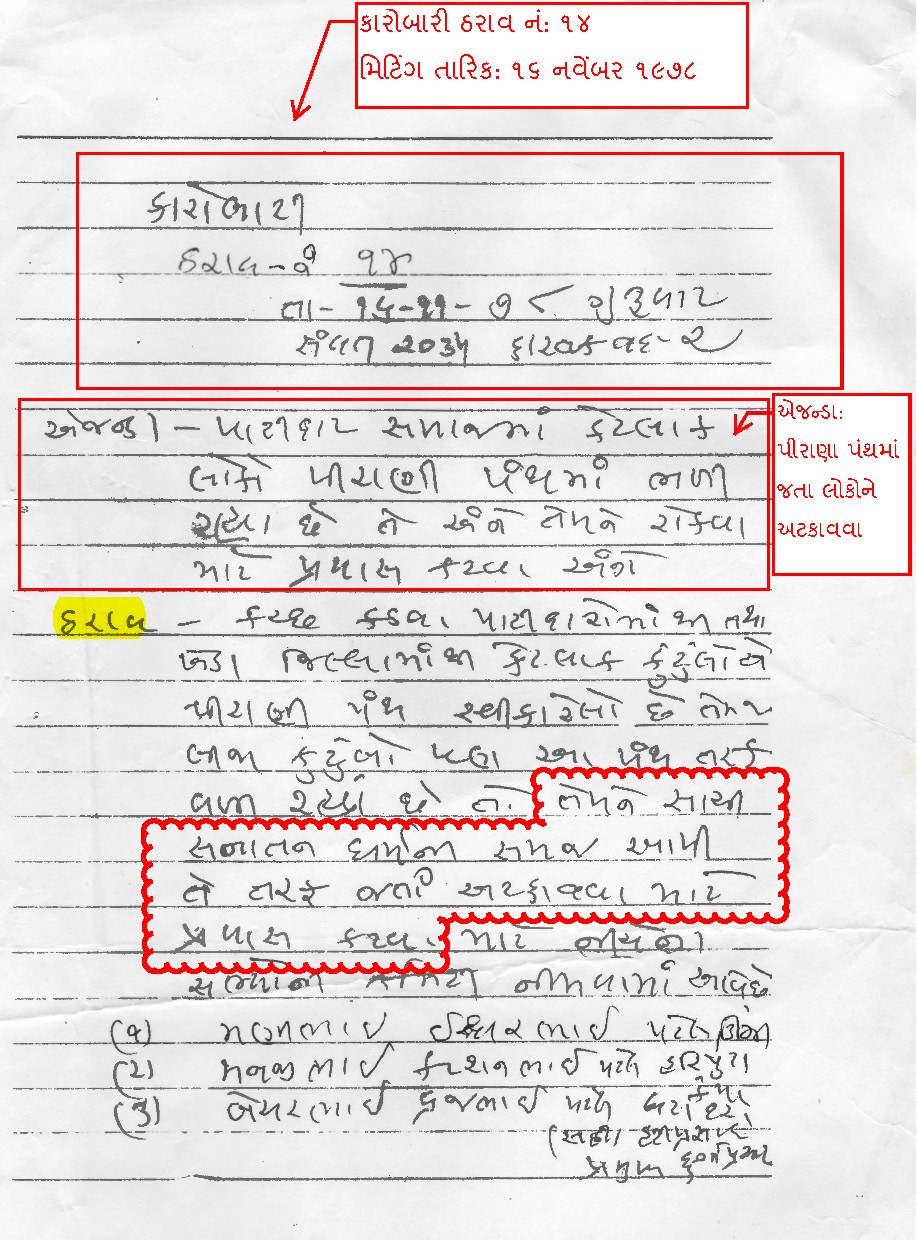 કારોબારી ઠરાવ નં: ૧૪
મિટિંગ તારિક: ૧૬ નવેંબર ૧૯૭૮
કારોબારી
ઠરાવ - નં ૧૪
તા - ૧૬-૧૧-૭૮ ગુરૂવાર
સંવત ૨૦૩૫ કારતક વદ - ૨
એજન્ડા:
પીરાણા પંથમાં
જતા લોકોને
અટકાવવા
એજન્ડા - પાટીદાર સમાજમાં કેટલાક
લોકો પીરાણી પંથમાં ભળી
રહ્યા છે તે અંગે તેમને રોકવા
માટે પ્રયાસ કરવા અંગે
ઠરાવ - કચ્છ કડવા પાટીદારોમાંથી તથા
ખેડા જિલ્લામાંથી કેટલાક કુટુંબોએ
પીરાણી પંથ સ્વીકારેલો છે તેમજ
બીજા કુટુંબો પણ આ પંથ તરફ
વળી રહ્યાં છે તો તેમને સાચી
સનાતન ધર્મની સમજ આપી
તે તરફ જતાં અટકાવવા માટે
પ્રયાસ કરવા માટે નીચેના
સભ્યોની કમિટી નીમવામાં આવે છે
(૧) મણીભાઈ ઈશ્વરભાઈ પટેલ
(૨) મનજીભાઈ કરશનભાઈ પટેલ હરિપુરા
(૩) બેચરભાઈ વ્રજભાઈ પટેલ
(સહી)
પ્રમુખ